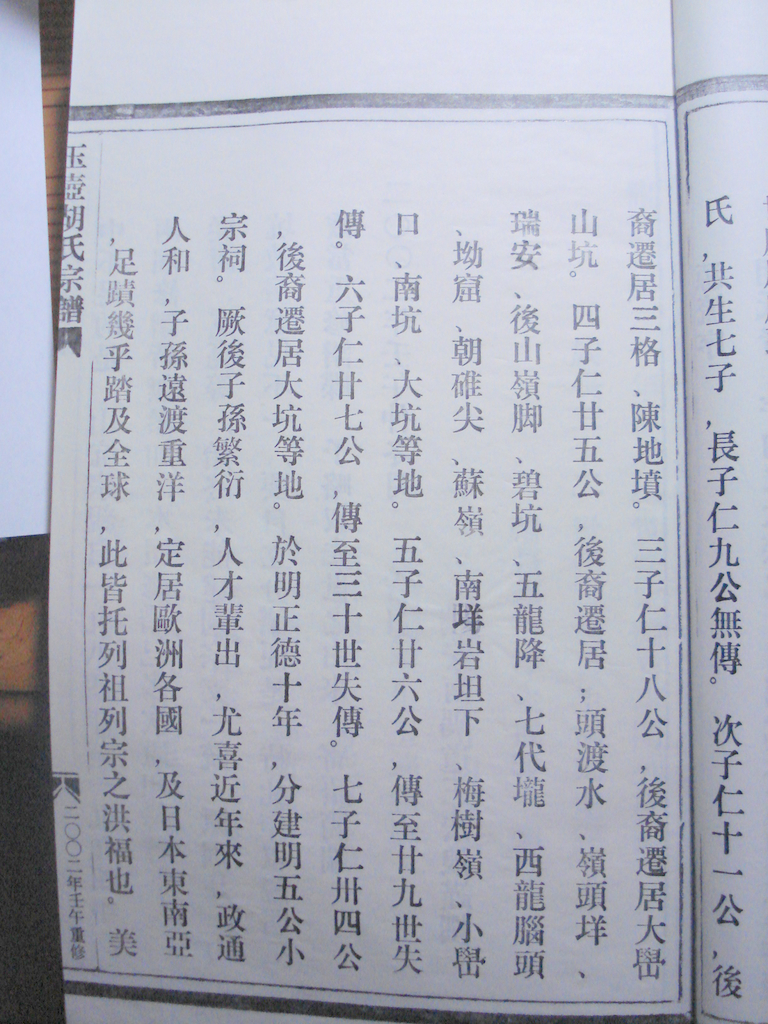 氏,共生七子,長子仁九公無傳。次子仁十一公,後
裔遷居三格、陳地墳。三子仁十八公,後裔遷居大嶨
山坑。四子仁廿五公,後裔遷居;頭渡水、嶺頭垟、
瑞安、後山嶺脚、碧坑、五龍降、七代壠、西龍腦頭
、坳窟、朝碓尖、蘇嶺、南垟岩坦下、梅樹嶺、小嶨
口、南坑、大坑等地。五子仁廿六公,傳至廿九世失
傳。六子仁廿七公,傳至三十世失傳。七子仁卅四公
,後裔遷居大坑等地。於明正德十年,分建明五公小
宗祠。厥後子孫繁衍,人才輩出,尤喜近年來,政通
人和,子孫遠渡重洋,定居歐洲各國,及日本東南亞
,足蹟幾乎踏及全球,此皆托列祖列宗之洪福也。美
玉壺胡氏宗譜
二〇〇二年壬午重修